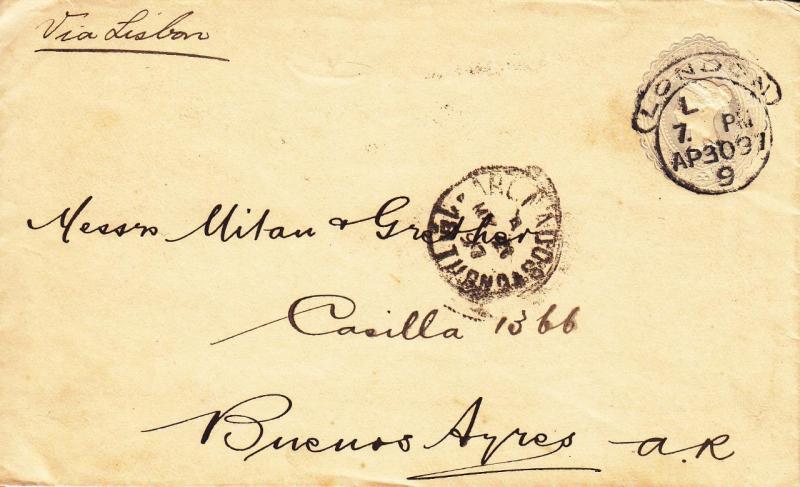 Via Lisbon
LONDON
L
7. PM
AP 30 97
9
Messrs Mitau & Grether
Casilla 1366
Buenos Ayres A.R